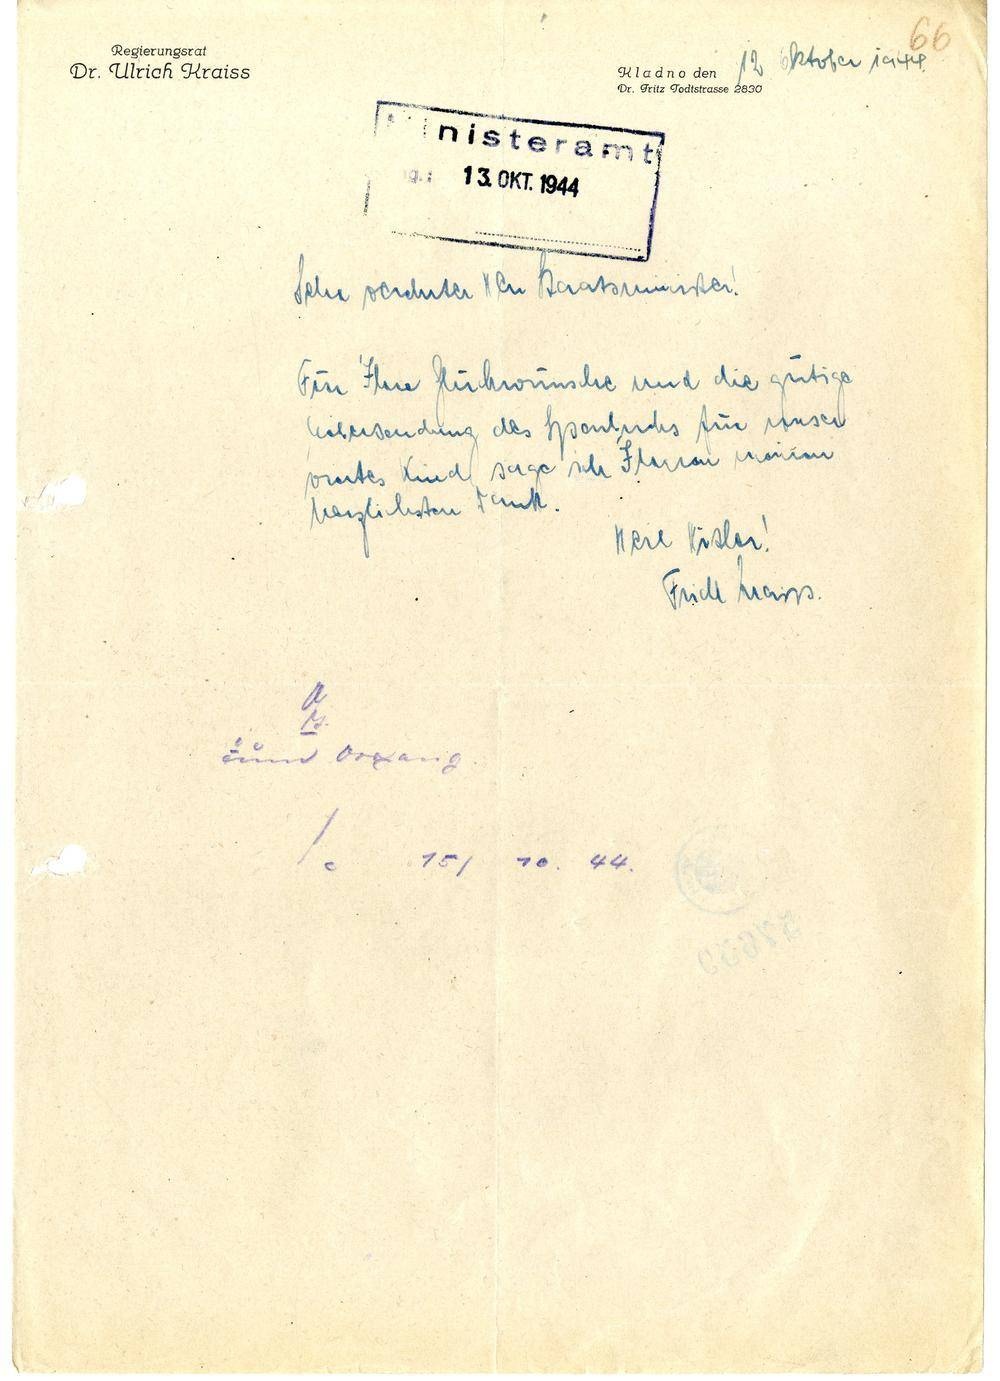 66
Regierungsrat
Dr. Ulrich Kraiss
Kladno den 12 Oktober 1944.
Dr. Fritz Todtstrasse 2830
Ministeramt
13. OKT. 1944
Sehr verehrter Herr Staatsminister!
Für Ihre Glückwünsche und die gütige
Uebersendung des Sparbuchs für unser
viertes Kind sage ich Ihnen meinen
herzlichsten Dank.
Heil Hitler!
Friedl Kraiss.
zum Vorgang
15/ 10. 44.